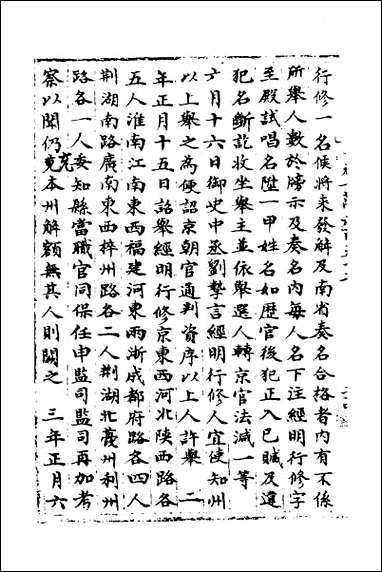 行修一名候將来發解及南省奏名合格者内有不係
所舉人數於牓示及奏名内每人名下注經明行修字
至殿試唱名陞一甲姓名如歴官後犯正入已贓及違
犯名斷訖收坐舉主並依舉選人轉京官法減一等
六月十六日御史中丞劉摯言經明行修人宜使知州
以上舉之為便詔京朝官通判資序以上人許舉 二
年正月十五日詔舉經明行修京東西河北陕西路各
五人淮南江南東西福建河東兩浙成都府路各四人
荆湖南路廣南東西梓州路各二人荆湖北䕫州利州
路各一人委知縣當職官同保任申監司監司再加考
察以聞仍充本州解額無其人則闕之 三年正月六